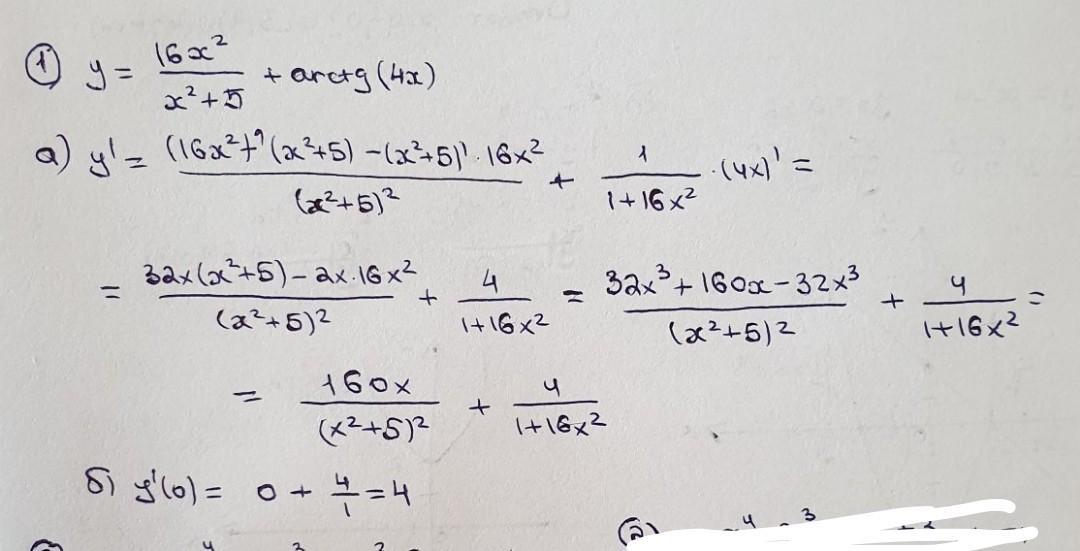 ① y = 16x²/(x²+5) + arctg(4x)
а) y' = ((16x²)'(x²+5) - (x²+5)'·16x²)/(x²+5)² + 1/(1+16x²) ·(4x)' =
= (32x(x²+5) - 2x·16x²)/(x²+5)² + 4/(1+16x²) = (32x³+160x-32x³)/(x²+5)² + 4/(1+16x²) =
= 160x/(x²+5)² + 4/(1+16x²)
б) y'(0) = 0 + 4/1 = 4